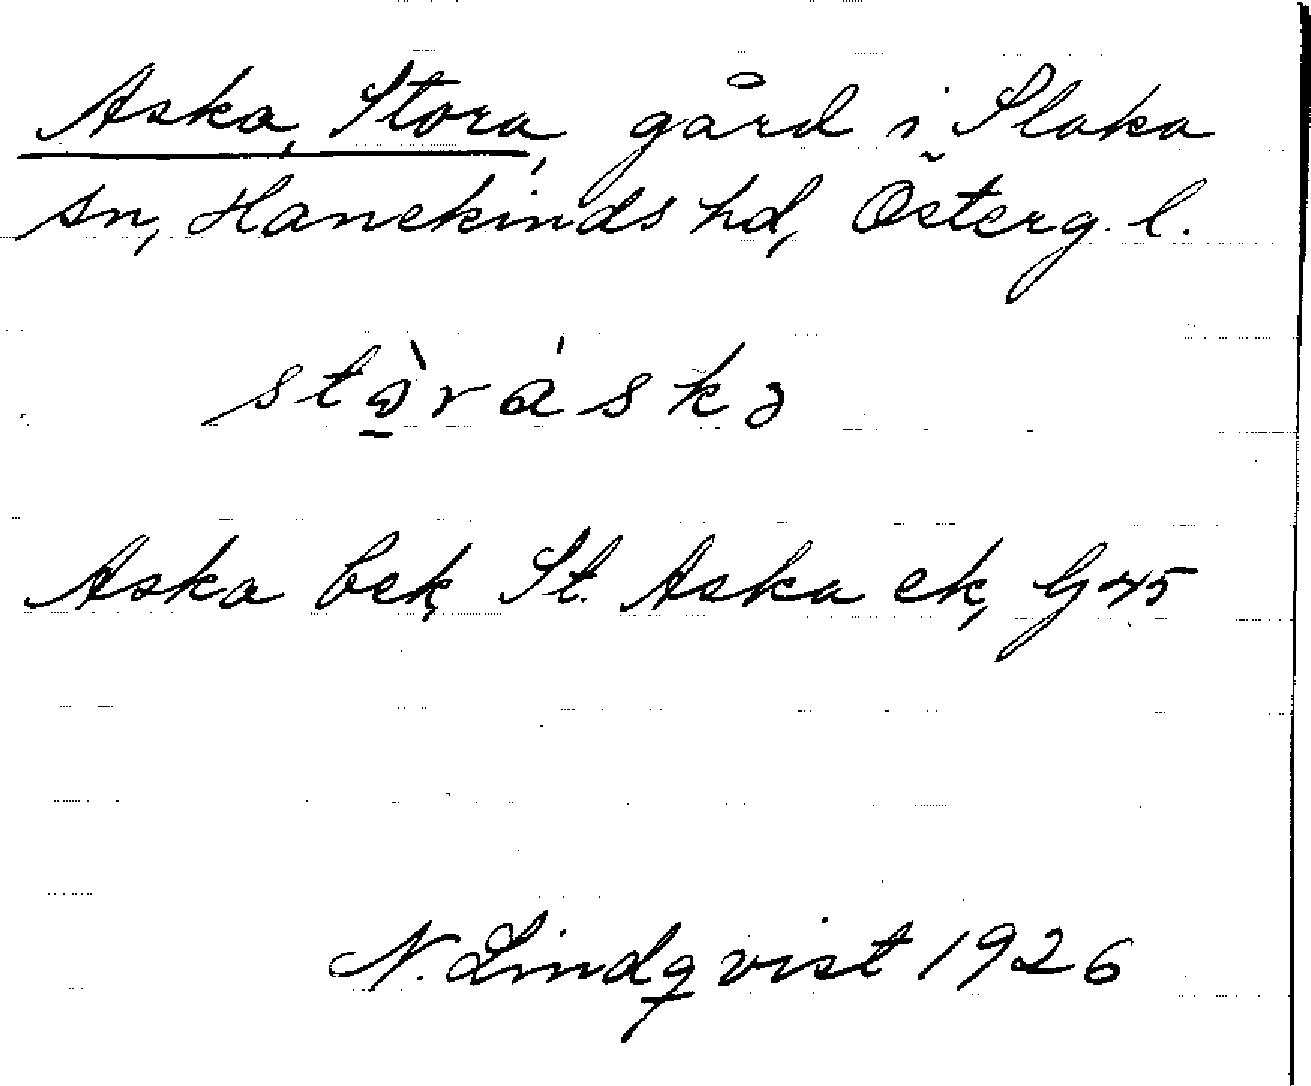 Aska, Stora, gård i Slaka
sn, Hanekinds hd, Österg. l.
stò̱ráskə
Aska bek, St. Aska ek, G45
N. Lindqvist 1926